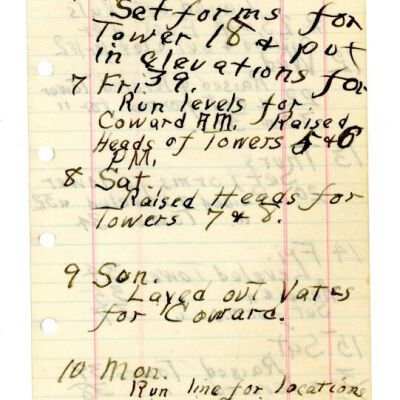 Set forms for
Tower 18 & put
in elevations for
7 Fri. 39.
Run levels for
Coward AM. Raised
Heads of Towers 5 & 6
PM.
8 Sat.
Raised Heads for
Towers 7 & 8.
9 Son.
Layed out Vates
for Coward.
10 Mon.
Run line for locations